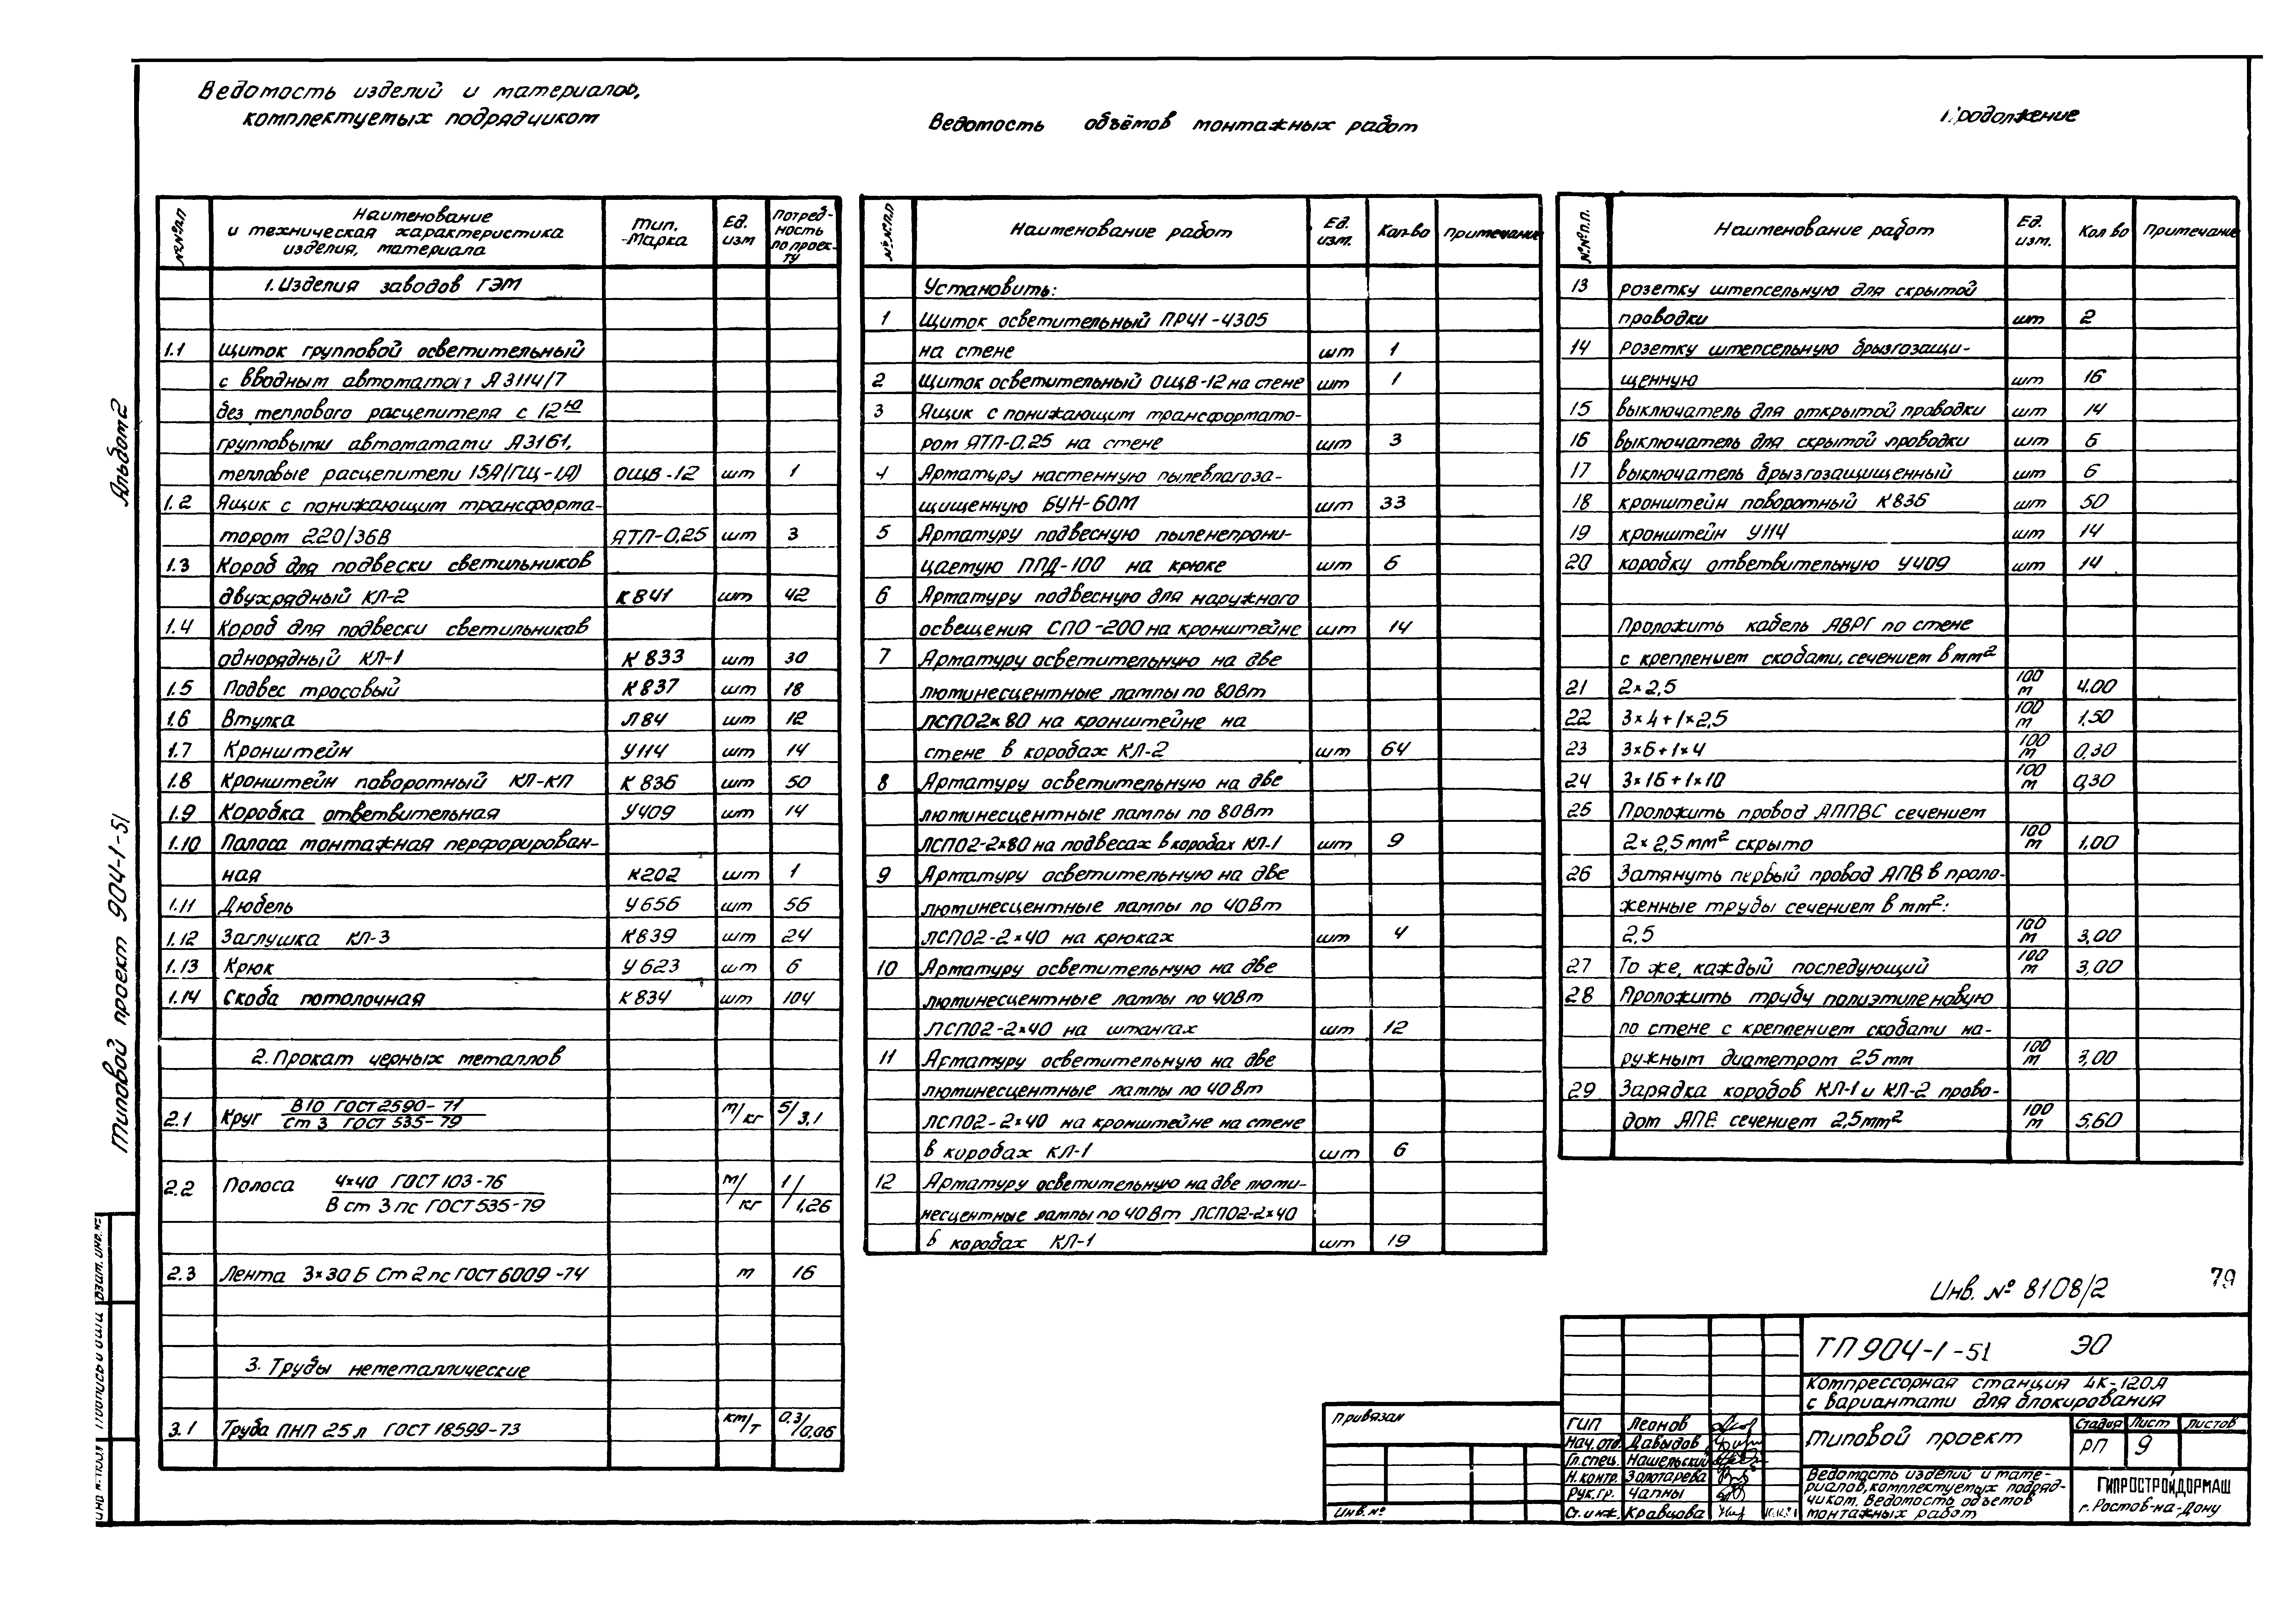 Ведомость изделий и материалов,
комплектуемых подрядчиком
№№п.п
Наименование
и техническая характеристика
изделия, материала
Тип.
-Марка
Ед.
изм
Потреб-
ность
по проек-
ту
1. Изделия заводов ГЭМ
1.1 Щиток групповой осветительный
с вводным автоматом А3114/7
без теплового расцепителя с 12ю
групповыми автоматами А3161,
тепловые расцепители 15А(ГЩ-1А) ОЩВ-12 шт 1
1.2 Ящик с понижающим трансформа-
тором 220/36В ЯТП-0,25 шт 3
1.3 Короб для подвески светильников
двухрядный КЛ-2 К841 шт 42
1.4 Короб для подвески светильников
однорядный КЛ-1 К833 шт 30
1.5 Подвес тросовый К837 шт 18
1.6 Втулка Л84 шт 12
1.7 Кронштейн У114 шт 14
1.8 Кронштейн поворотный КЛ-КП К836 шт 50
1.9 Коробка ответвительная У409 шт 14
1.10 Полоса монтажная перфорирован-
ная К202 шт 1
1.11 Дюбель У656 шт 56
1.12 Заглушка КЛ-3 К839 шт 24
1.13 Крюк У623 шт 6
1.14 Скоба потолочная К834 шт 104
2. Прокат черных металлов
2.1 Круг В10 ГОСТ 2590-71 / Ст 3 ГОСТ 535-79 м/кг 5/3,1
2.2 Полоса 4×40 ГОСТ 103-76 / В ст 3 пс ГОСТ 535-79 м/кг 1/1,26
2.3 Лента 3×30 Б Ст 2 пс ГОСТ 6009-74 м 16
3. Трубы неметаллические
3.1 Труба ПНП 25 л ГОСТ 18599-73 км/т 0,3/0,06
Ведомость объёмов монтажных работ
№№п.п
Наименование работ
Ед.
изм.
Кол-во
Примечание
Установить:
1 Щиток осветительный ПР41-4305
на стене шт 1
2 Щиток осветительный ОЩВ-12 на стене шт 1
3 Ящик с понижающим трансформато-
ром ЯТП-0.25 на стене шт 3
4 Арматуру настенную пылевлагоза-
щищенную БУН-60М шт 33
5 Арматуру подвесную пыленепрони-
цаемую ППД-100 на крюке шт 6
6 Арматуру подвесную для наружного
освещения СПО-200 на кронштейне шт 14
7 Арматуру осветительную на две
люминесцентные лампы по 80Вт
ЛСП02×80 на кронштейне на
стене в коробах КЛ-2 шт 64
8 Арматуру осветительную на две
люминесцентные лампы по 80Вт
ЛСП02-2×80 на подвесах в коробах КЛ-1 шт 9
9 Арматуру осветительную на две
люминесцентные лампы по 40Вт
ЛСП02-2×40 на крюках шт 4
10 Арматуру осветительную на две
люминесцентные лампы по 40Вт
ЛСП02-2×40 на штангах шт 12
11 Арматуру осветительную на две
люминесцентные лампы по 40Вт
ЛСП02-2×40 на кронштейне на стене
в коробах КЛ-1 шт 6
12 Арматуру осветительную на две люми-
несцентные лампы по 40Вт ЛСП02-2×40
в коробах КЛ-1 шт 19
Продолжение
№№п.п.
Наименование работ
Ед.
изм.
Кол во
Примечание
13 розетку штепсельную для скрытой
проводки шт 2
14 розетку штепсельную брызгозащи-
щенную шт 16
15 выключатель для открытой проводки шт 14
16 выключатель для скрытой проводки шт 6
17 выключатель брызгозащищенный шт 6
18 кронштейн поворотный К836 шт 50
19 кронштейн У114 шт 14
20 коробку ответвительную У409 шт 14
Проложить кабель АВРГ по стене
с креплением скобами, сечением в мм²
21 2×2,5 100 м 4.00
22 3×4+1×2,5 100 м 1.50
23 3×6+1×4 100 м 0,30
24 3×16+1×10 100 м 0,30
25 Проложить провод АППВС сечением
2×2,5мм² скрыто 100 м 1.00
26 Затянуть первый провод АПВ в проло-
женные трубы сечением в мм²:
2,5 100 м 3,00
27 То же, каждый последующий 100 м 3,00
28 Проложить трубу полиэтиленовую
по стене с креплением скобами на-
ружным диаметром 25мм 100 м 3,00
29 Зарядка коробов КЛ-1 и КЛ-2 прово-
дом АПВ сечением 2,5мм² 100 м 5,60
Альбом 2
Типовой проект 904-1-51
Взам. инв. №
Подпись и дата
Инв № подл
Инв. № 8108/2
79
Привязан
Инв. №
ГИП Леонов
Нач. отд. Давыдов
Гл. спец. Нашельский
Н. контр. Золотарева
Рук. гр. Чапны
Ст. инж. Кравцова
ТП 904-1-51 ЭО
Компрессорная станция 4К-120А
с вариантами для блокирования
Типовой проект
Стадия Лист Листов
РП 9
Ведомость изделий и мате-
риалов, комплектуемых подряд-
чиком. Ведомость объемов
монтажных работ
ГИПРОСТРОЙДОРМАШ
г. Ростов-на-Дону